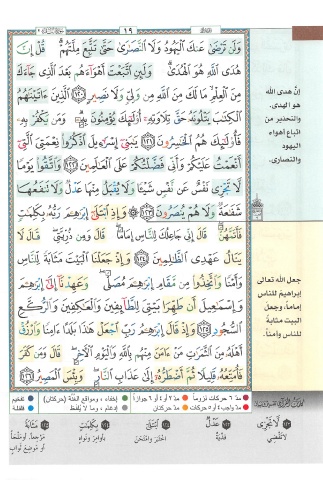 ١٩
وَلَن تَرْضَىٰ عَنكَ ٱلْيَهُودُ وَلَا ٱلنَّصَٰرَىٰ حَتَّىٰ تَتَّبِعَ مِلَّتَهُمْ ۗ قُلْ إِنَّ
هُدَى ٱللَّهِ هُوَ ٱلْهُدَىٰ ۗ وَلَئِنِ ٱتَّبَعْتَ أَهْوَآءَهُم بَعْدَ ٱلَّذِى جَآءَكَ
مِنَ ٱلْعِلْمِ ۙ مَا لَكَ مِنَ ٱللَّهِ مِن وَلِىٍّ وَلَا نَصِيرٍ ١٢٠ ٱلَّذِينَ ءَاتَيْنَٰهُمُ
ٱلْكِتَٰبَ يَتْلُونَهُۥ حَقَّ تِلَاوَتِهِۦٓ أُو۟لَٰٓئِكَ يُؤْمِنُونَ بِهِۦ ۗ وَمَن يَكْفُرْ بِهِۦ
فَأُو۟لَٰٓئِكَ هُمُ ٱلْخَٰسِرُونَ ١٢١ يَٰبَنِىٓ إِسْرَٰٓءِيلَ ٱذْكُرُوا۟ نِعْمَتِىَ ٱلَّتِىٓ
أَنْعَمْتُ عَلَيْكُمْ وَأَنِّى فَضَّلْتُكُمْ عَلَى ٱلْعَٰلَمِينَ ١٢٢ وَٱتَّقُوا۟ يَوْمًا
لَّا تَجْزِى نَفْسٌ عَن نَّفْسٍ شَيْـًٔا وَلَا يُقْبَلُ مِنْهَا عَدْلٌ وَلَا تَنفَعُهَا
شَفَٰعَةٌ وَلَا هُمْ يُنصَرُونَ ١٢٣ ۞ وَإِذِ ٱبْتَلَىٰٓ إِبْرَٰهِۦمَ رَبُّهُۥ بِكَلِمَٰتٍ
فَأَتَمَّهُنَّ ۖ قَالَ إِنِّى جَاعِلُكَ لِلنَّاسِ إِمَامًا ۖ قَالَ وَمِن ذُرِّيَّتِى ۖ قَالَ لَا
يَنَالُ عَهْدِى ٱلظَّٰلِمِينَ ١٢٤ وَإِذْ جَعَلْنَا ٱلْبَيْتَ مَثَابَةً لِّلنَّاسِ
وَأَمْنًا وَٱتَّخِذُوا۟ مِن مَّقَامِ إِبْرَٰهِۦمَ مُصَلًّى ۖ وَعَهِدْنَآ إِلَىٰٓ إِبْرَٰهِۦمَ
وَإِسْمَٰعِيلَ أَن طَهِّرَا بَيْتِىَ لِلطَّآئِفِينَ وَٱلْعَٰكِفِينَ وَٱلرُّكَّعِ
ٱلسُّجُودِ ١٢٥ وَإِذْ قَالَ إِبْرَٰهِۦمُ رَبِّ ٱجْعَلْ هَٰذَا بَلَدًا ءَامِنًا وَٱرْزُقْ
أَهْلَهُۥ مِنَ ٱلثَّمَرَٰتِ مَنْ ءَامَنَ مِنْهُم بِٱللَّهِ وَٱلْيَوْمِ ٱلْـَٔاخِرِ ۖ قَالَ وَمَن كَفَرَ
فَأُمَتِّعُهُۥ قَلِيلًا ثُمَّ أَضْطَرُّهُۥٓ إِلَىٰ عَذَابِ ٱلنَّارِ ۖ وَبِئْسَ ٱلْمَصِيرُ ١٢٦
إن هدى الله
هو الهدى،
والتحذير من
اتباع أهواء
اليهود
والنصارى.
جعل الله تعالى
إبراهيم للناس
إماماً، وجعل
البيت مثابة
للناس وأمناً.
مدّ ٦ حركات لزوماً
مدّ ٢ أو ٤ أو ٦ جوازاً
إخفاء، ومواقع الغُنَّة (حركتان)
تفخيم
مدّ واجب ٤ أو ٥ حركات
مدّ حركتان
إدغام، وما لا يُلفَظ
قلقلة
لَا تَجْزِي
لا تقضي
عَدْلٌ
فدية
ٱبْتَلَىٰ
اختبر وامتحن
بِكَلِمَٰتٍ
بأوامر ونواهٍ
مَثَابَةً
مرجعاً، أو ملجأً
أو موضع ثواب